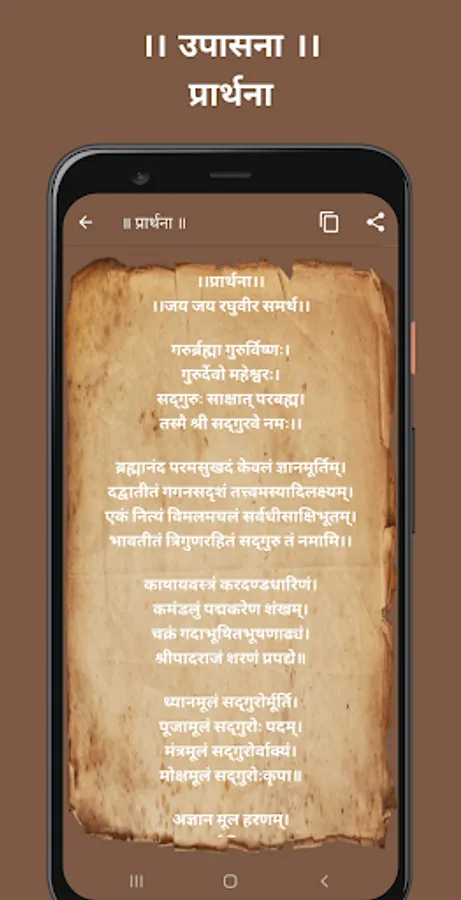 ।। उपासना ।।
प्रार्थना
॥ प्रार्थना ॥
।।प्रार्थना।।
।।जय जय रघुवीर समर्थ।।
गरुर्ब्रह्मा गुरुर्विष्णः।
गुरुर्देवो महेश्वरः।
सद्‌गुरुः साक्षात् परबह्म।
तस्मै श्री सद्‌गुरवे नमः।।
ब्रह्मानंद परमसुखदं केवलं ज्ञानमूर्तिम्।
दद्वातीतं गगनसदृशं तत्त्वमस्यादिलक्ष्यम्।
एकं नित्यं विमलमचलं सर्वधीसाक्षिभूतम्।
भावतीतं त्रिगुणरहितं सद्‌गुरु तं नमामि।।
काषायवस्त्रं करदण्डधारिणं।
कमंडलुं पद्मकरेण शंखम्।
चक्रं गदाभूषितभूषणाढ्यं।
श्रीपादराजं शरणं प्रपद्ये॥
ध्यानमूलं सद्‌गुरोर्मूर्ति।
पूजामूलं सद्‌गुरोः पदम्।
मंत्रमूलं सद्‌गुरोर्वाक्यं।
मोक्षमूलं सद्‌गुरोःकृपा॥
अज्ञान मूल हरणम्।